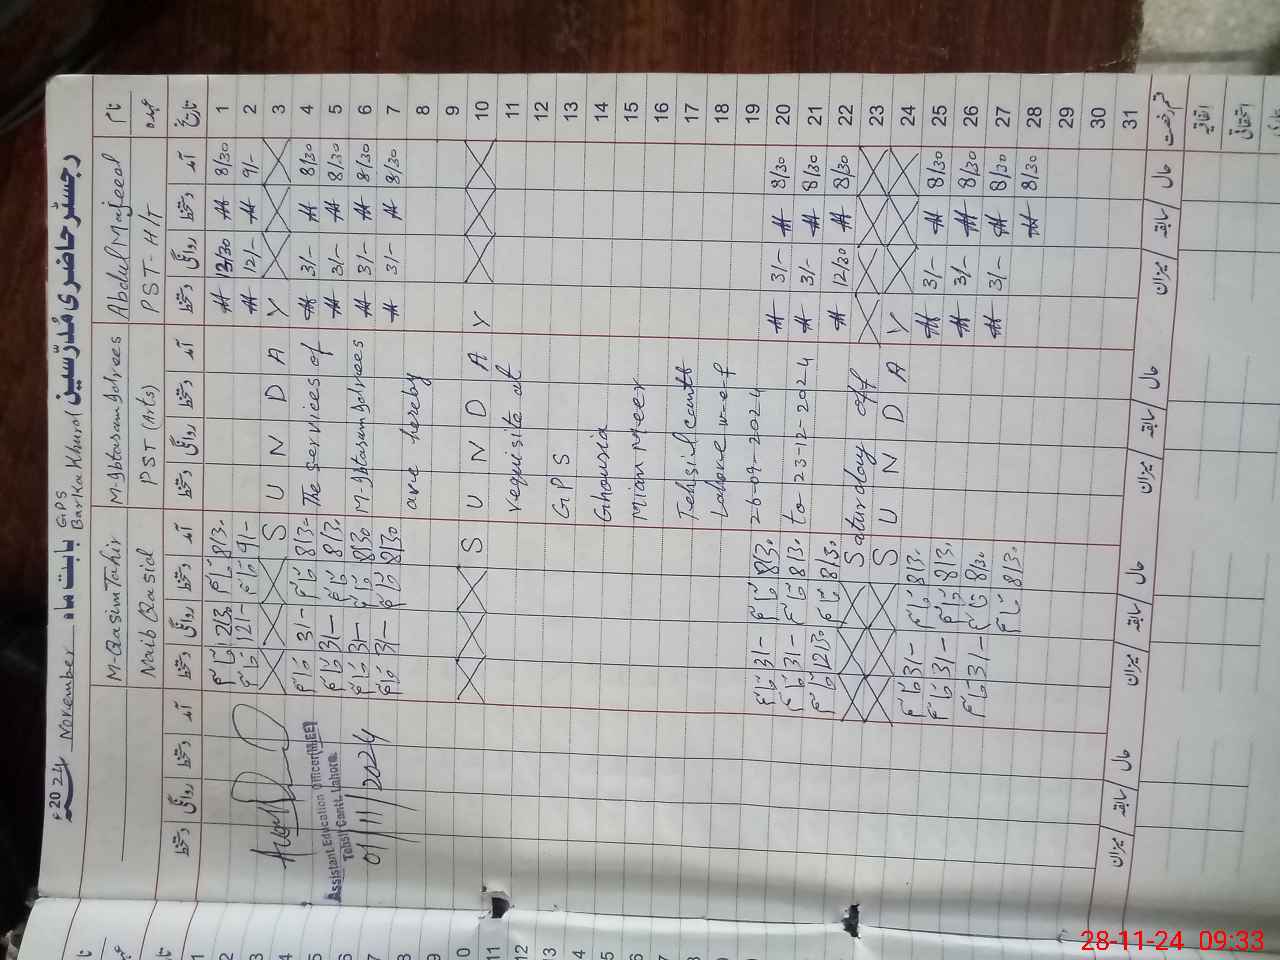 رجسٹر حاضری مدرسین بابت ماہ November 2024ء
GPS
Barka Khurd
نام Abdul Majeed M-Ibtasam Idrees M-Qasim Tahir
عہدہ PST-HT PST (Arts) Naib Qasid
تاریخ آمد دستخط روانگی دستخط آمد دستخط روانگی دستخط آمد دستخط روانگی دستخط آمد دستخط روانگی دستخط
1 8/30 12/30 8/30 12/30
2 9/- 12/- 9/- 12/-
3 S U N D A Y
4 8/30 3/- The services of 8/30 3/-
5 8/30 3/- 8/30 3/-
6 8/30 3/- M-Ibtasam Idrees 8/30 3/-
7 8/30 3/- 8/30 3/-
8 are hereby
9
10 S U N D A Y
11 requisite at
12
13 GPS
14 Ghousia
15 Mian Meer
16
17 Tehsil Cantt
18 Lahore w-e-f
19 26-09-2024
20 8/30 3/- 8/30 3/-
21 8/30 3/- to 23-12-2024 8/30 3/-
22 8/30 12/30 8/30 12/30
23 Saturday off
24 S U N D A Y
25 8/30 3/- 8/30 3/-
26 8/30 3/- 8/30 3/-
27 8/30 3/- 8/30 3/-
28 8/30 8/30
29
30
31
قسم رخصت حال سابقہ میزان حال سابقہ میزان حال سابقہ میزان حال سابقہ میزان
اتفاقیہ
استحقاقی
Assistant Education Officer (MEE)
Tehsil Cantt. Lahore
01/11/2024
1
2
3
4
5
6
7
8
9
0
11
12
13
4
5
6
7
8
9
20
21
2
3
4
5
6
7
28-11-24 09:33